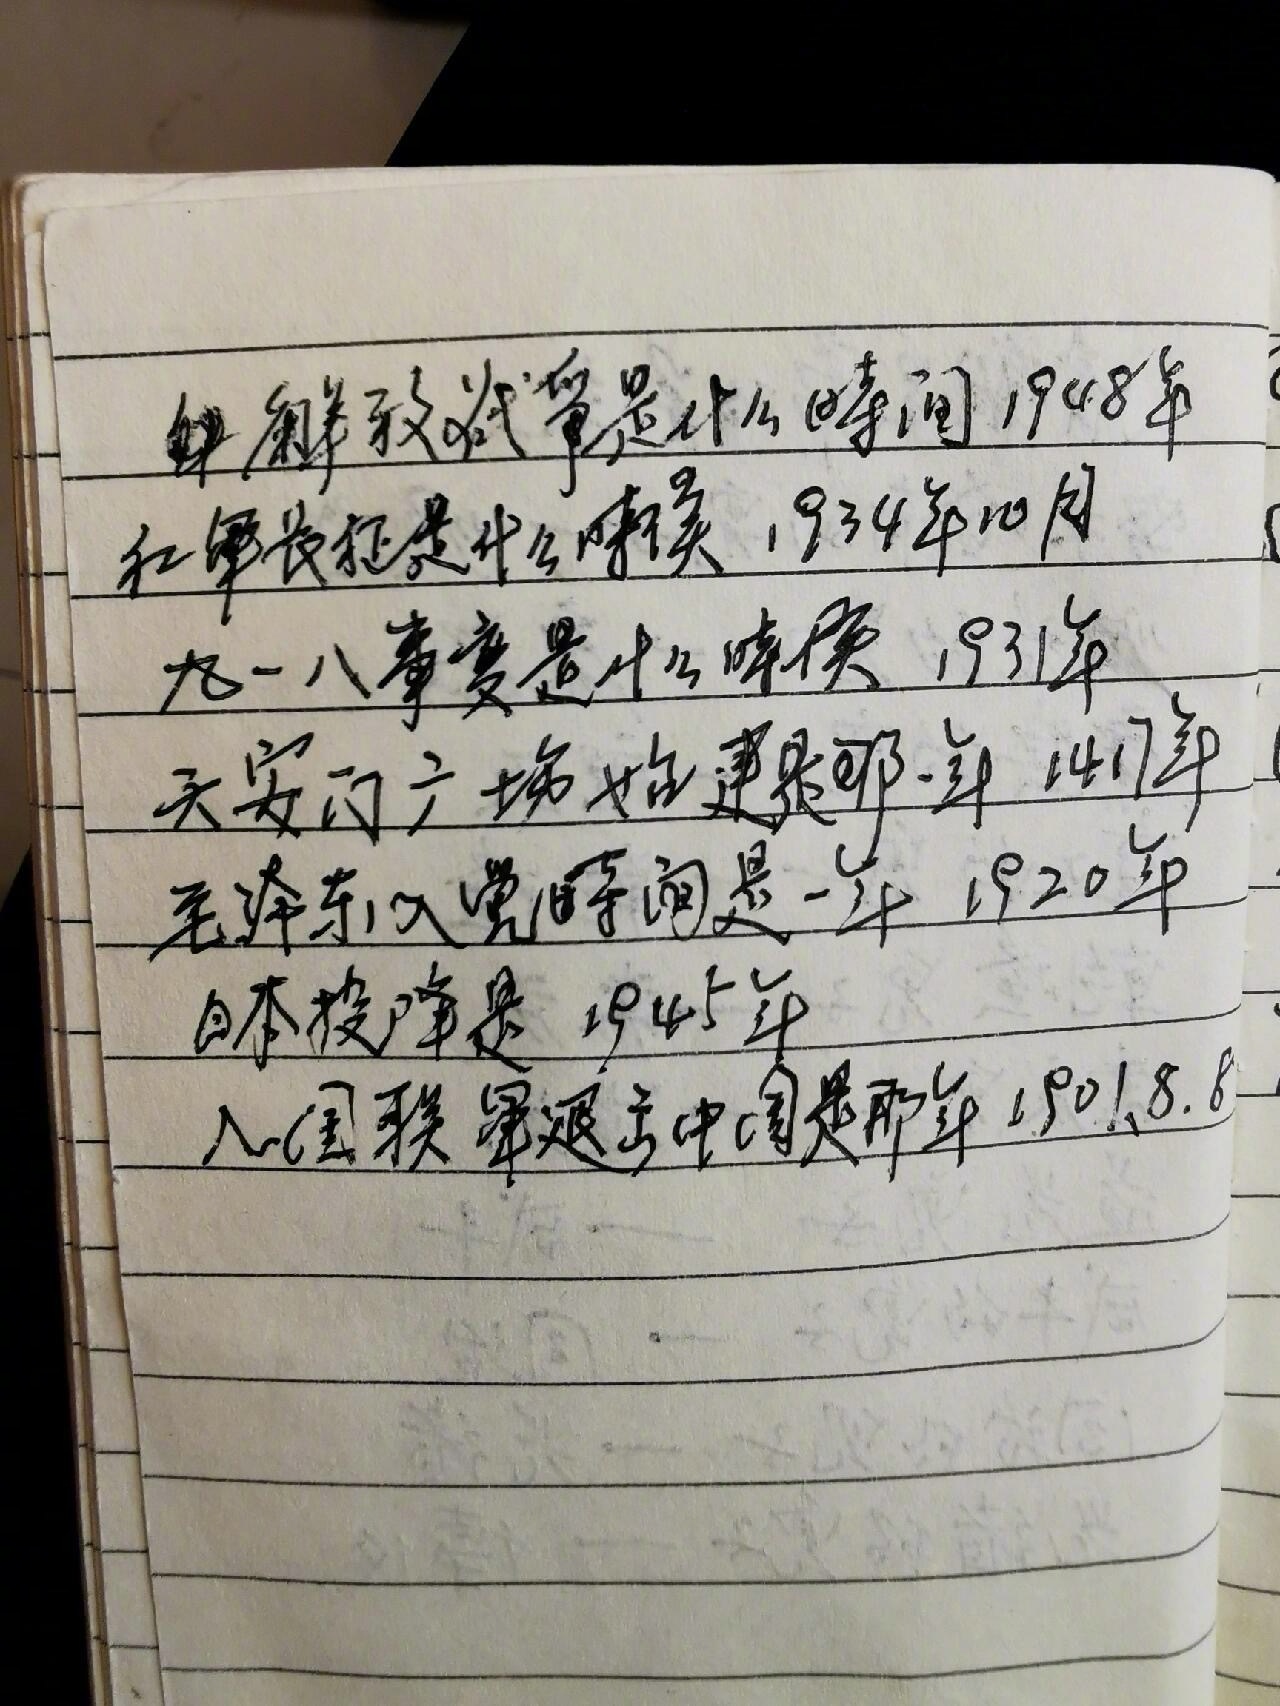 解放战争是什么時间 1948年
红軍长征是什么時候 1934年10月
九一八事变是什么時候 1931年
天安门广场始建是那一年 1417年
毛泽东入党時间是一年 1920年
日本投降是 1945年
八国联軍退出中国是那年 1901.8.8